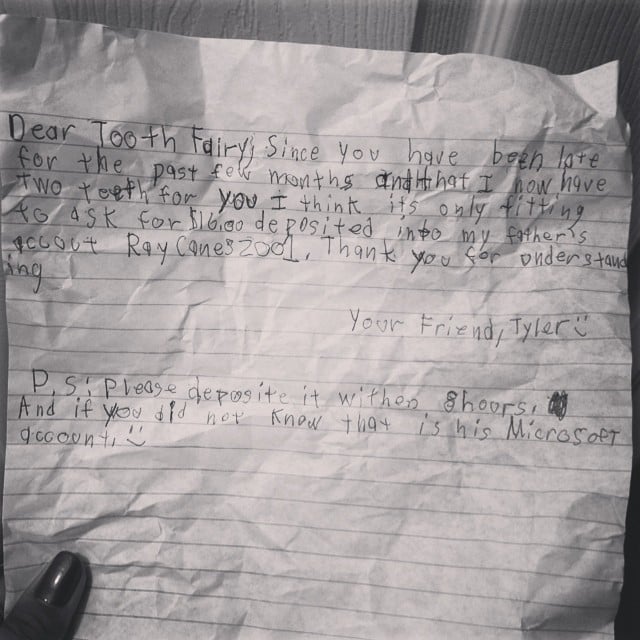 Dear Tooth Fairy, Since you have been late
for the past few months and that I now have
two teeth for you I think its only fitting
to ask for $16.00 deposited into my father's
accout RayCanes2001. Thank you for understand
ing
Your Friend, Tyler
P.S. Please deposite it withen 8hours.
And if you did not know that is his Microsoft
account.